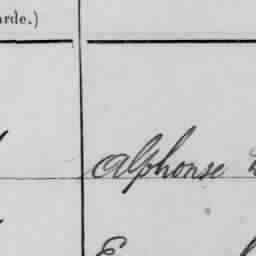 arde.)
Alphonse